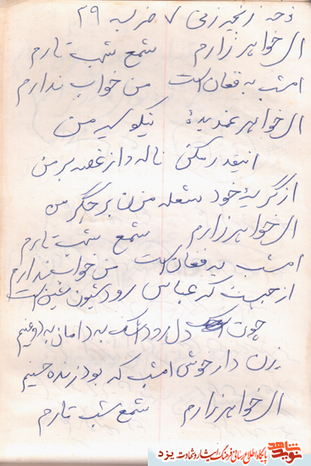 نوحه زنجیر زنی ۷ ضربه ۲۹
ال خواهر زارم شمع شب تارم
امشب به فغان است من خواب ندارم
ال خواهر غمدیدهٔ نیکو سیر من
اینقدر مکن ناله دراز غصه بر من
از گریهٔ خود شعله مزن بر جگر من
ال خواهر زارم شمع شب تارم
امشب به فغان است من خواب ندارم
از چیست که عباس رود شیون
دل رود اشک به دامان
بزن دار خوشی امشب که بود زنده حسینم
ال خواهر زارم شمع شب تارم
شاهد نوید
پایگاه اطلاع رسانی فرهنگ ایثار و شهادت یزد